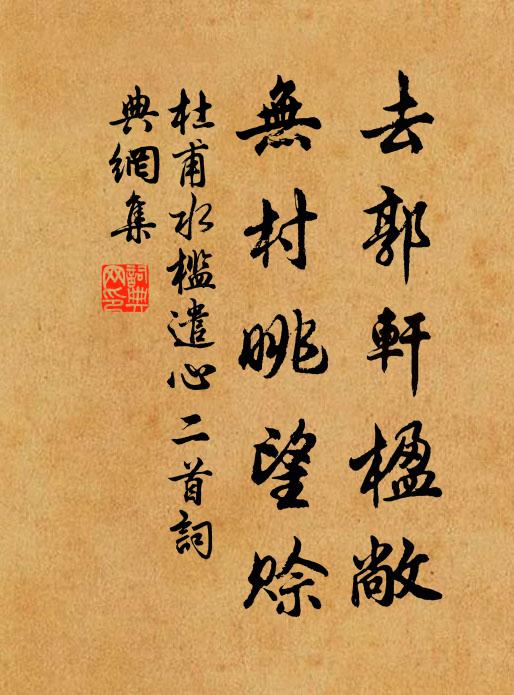 去郭軒楹敞
無村眺望賒
杜甫水檻遣心二首詞
典網集
詞典網印